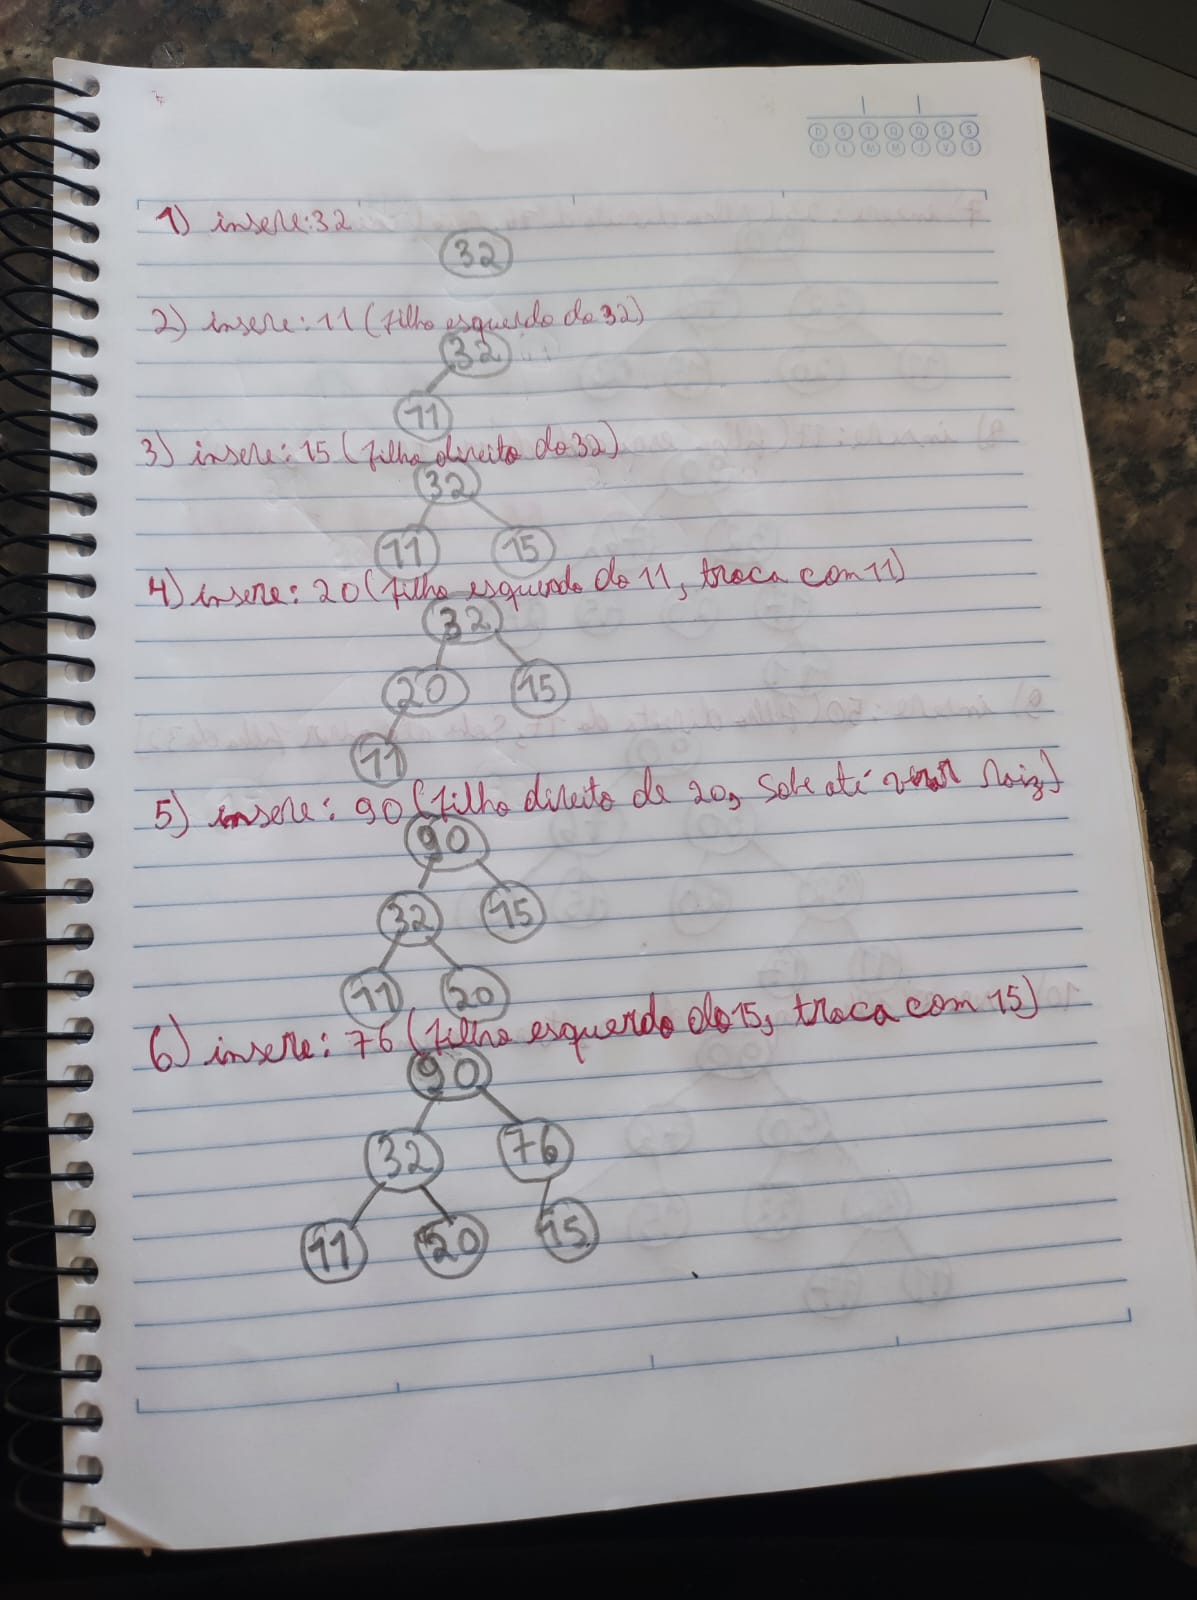 D S T Q Q S S
D L M M J V S
1) insere: 32
32
2) insere: 11 (filho esquerdo do 32)
32
11
3) insere: 15 (filho direito do 32)
32
11 15
4) insere: 20 (filho esquerdo do 11, troca com 11)
32
20 15
11
5) insere: 90 (filho direito de 20, sobe até virar raiz)
90
32 15
11 20
6) insere: 76 (filho esquerdo do 15, troca com 15)
90
32 76
11 20 15